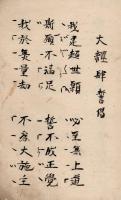 大經肆誓偈
我建超世願 必至無上道
斯願不滿足 誓不成正覺
我於無量劫 不為大施主